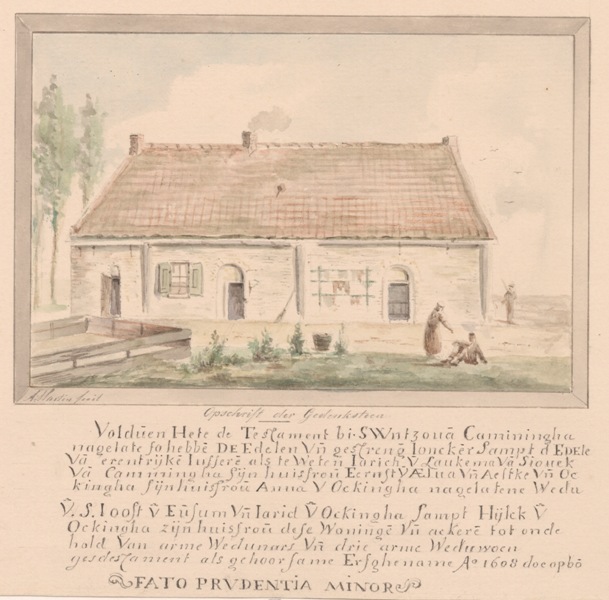 fecit
Opschrift der Gedenksteen
Voldūen Hete de Testament bi SWntzouā Caminingha
nagelate so hebbē DE Edelen Vn̄ gestreng Ioncker Sampt d EDELE
Vā erentrijke Iufferē als te Weten Iarich V Laukema Vā Siouck
Vā Camminigha Sijn huisfroū Ernst V AEsua Vn̄ Aeltke Vn̄ Oc
kingha sijnhuisfroū Anna V Ockingha nagelatene Wedu
V̄. S. Ioost V̄ Eūsum Vn̄ Iarid V̄ Ockingha sampt Hijlck V̄
Ockingha zijn huisfroū dese Woningē Vn̄ ackerē tot onde
hold Van arme Wedunars Vn̄ drie arme Weduwoen
gesdestament als gehoorsame Ersghename Aº 1608 doe opbō
FATO PRVDENTIA MINOR